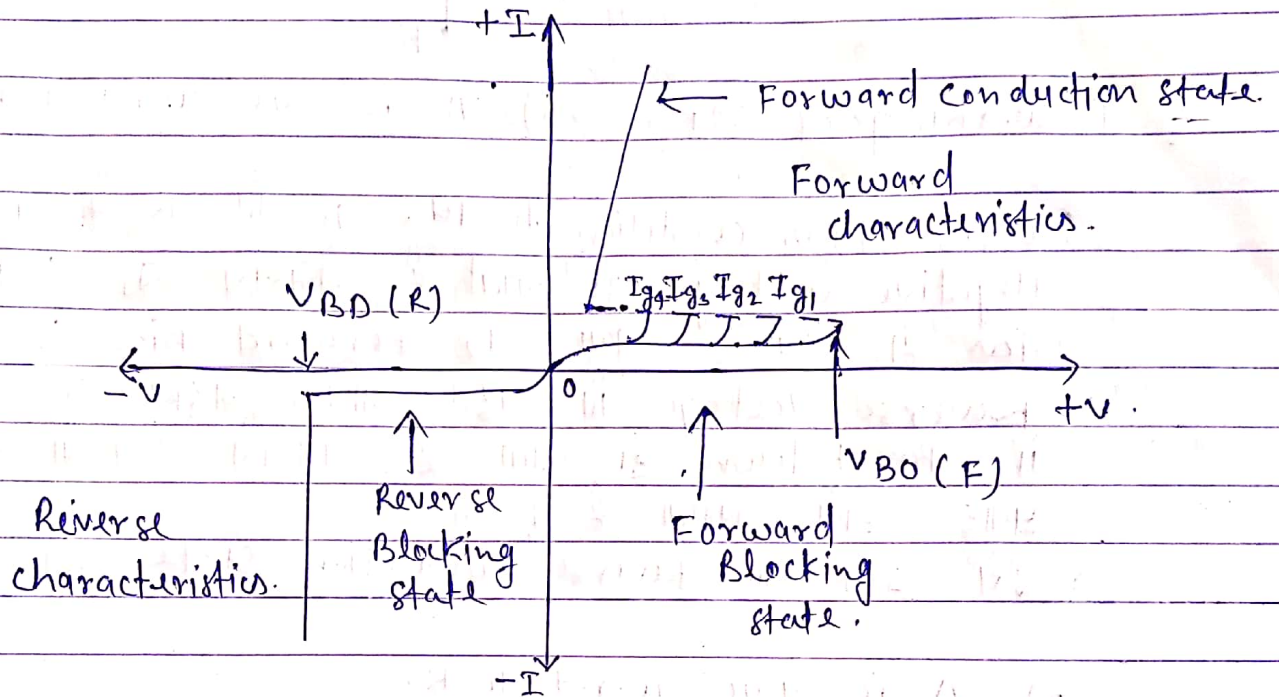 +I
← Forward conduction state.
Forward
characteristics.
Ig4 Ig3 Ig2 Ig1
VBD (R)
-V
0
+V.
VBO (F)
Reverse
characteristics.
Reverse
Blocking
state
Forward
Blocking
state.
-I